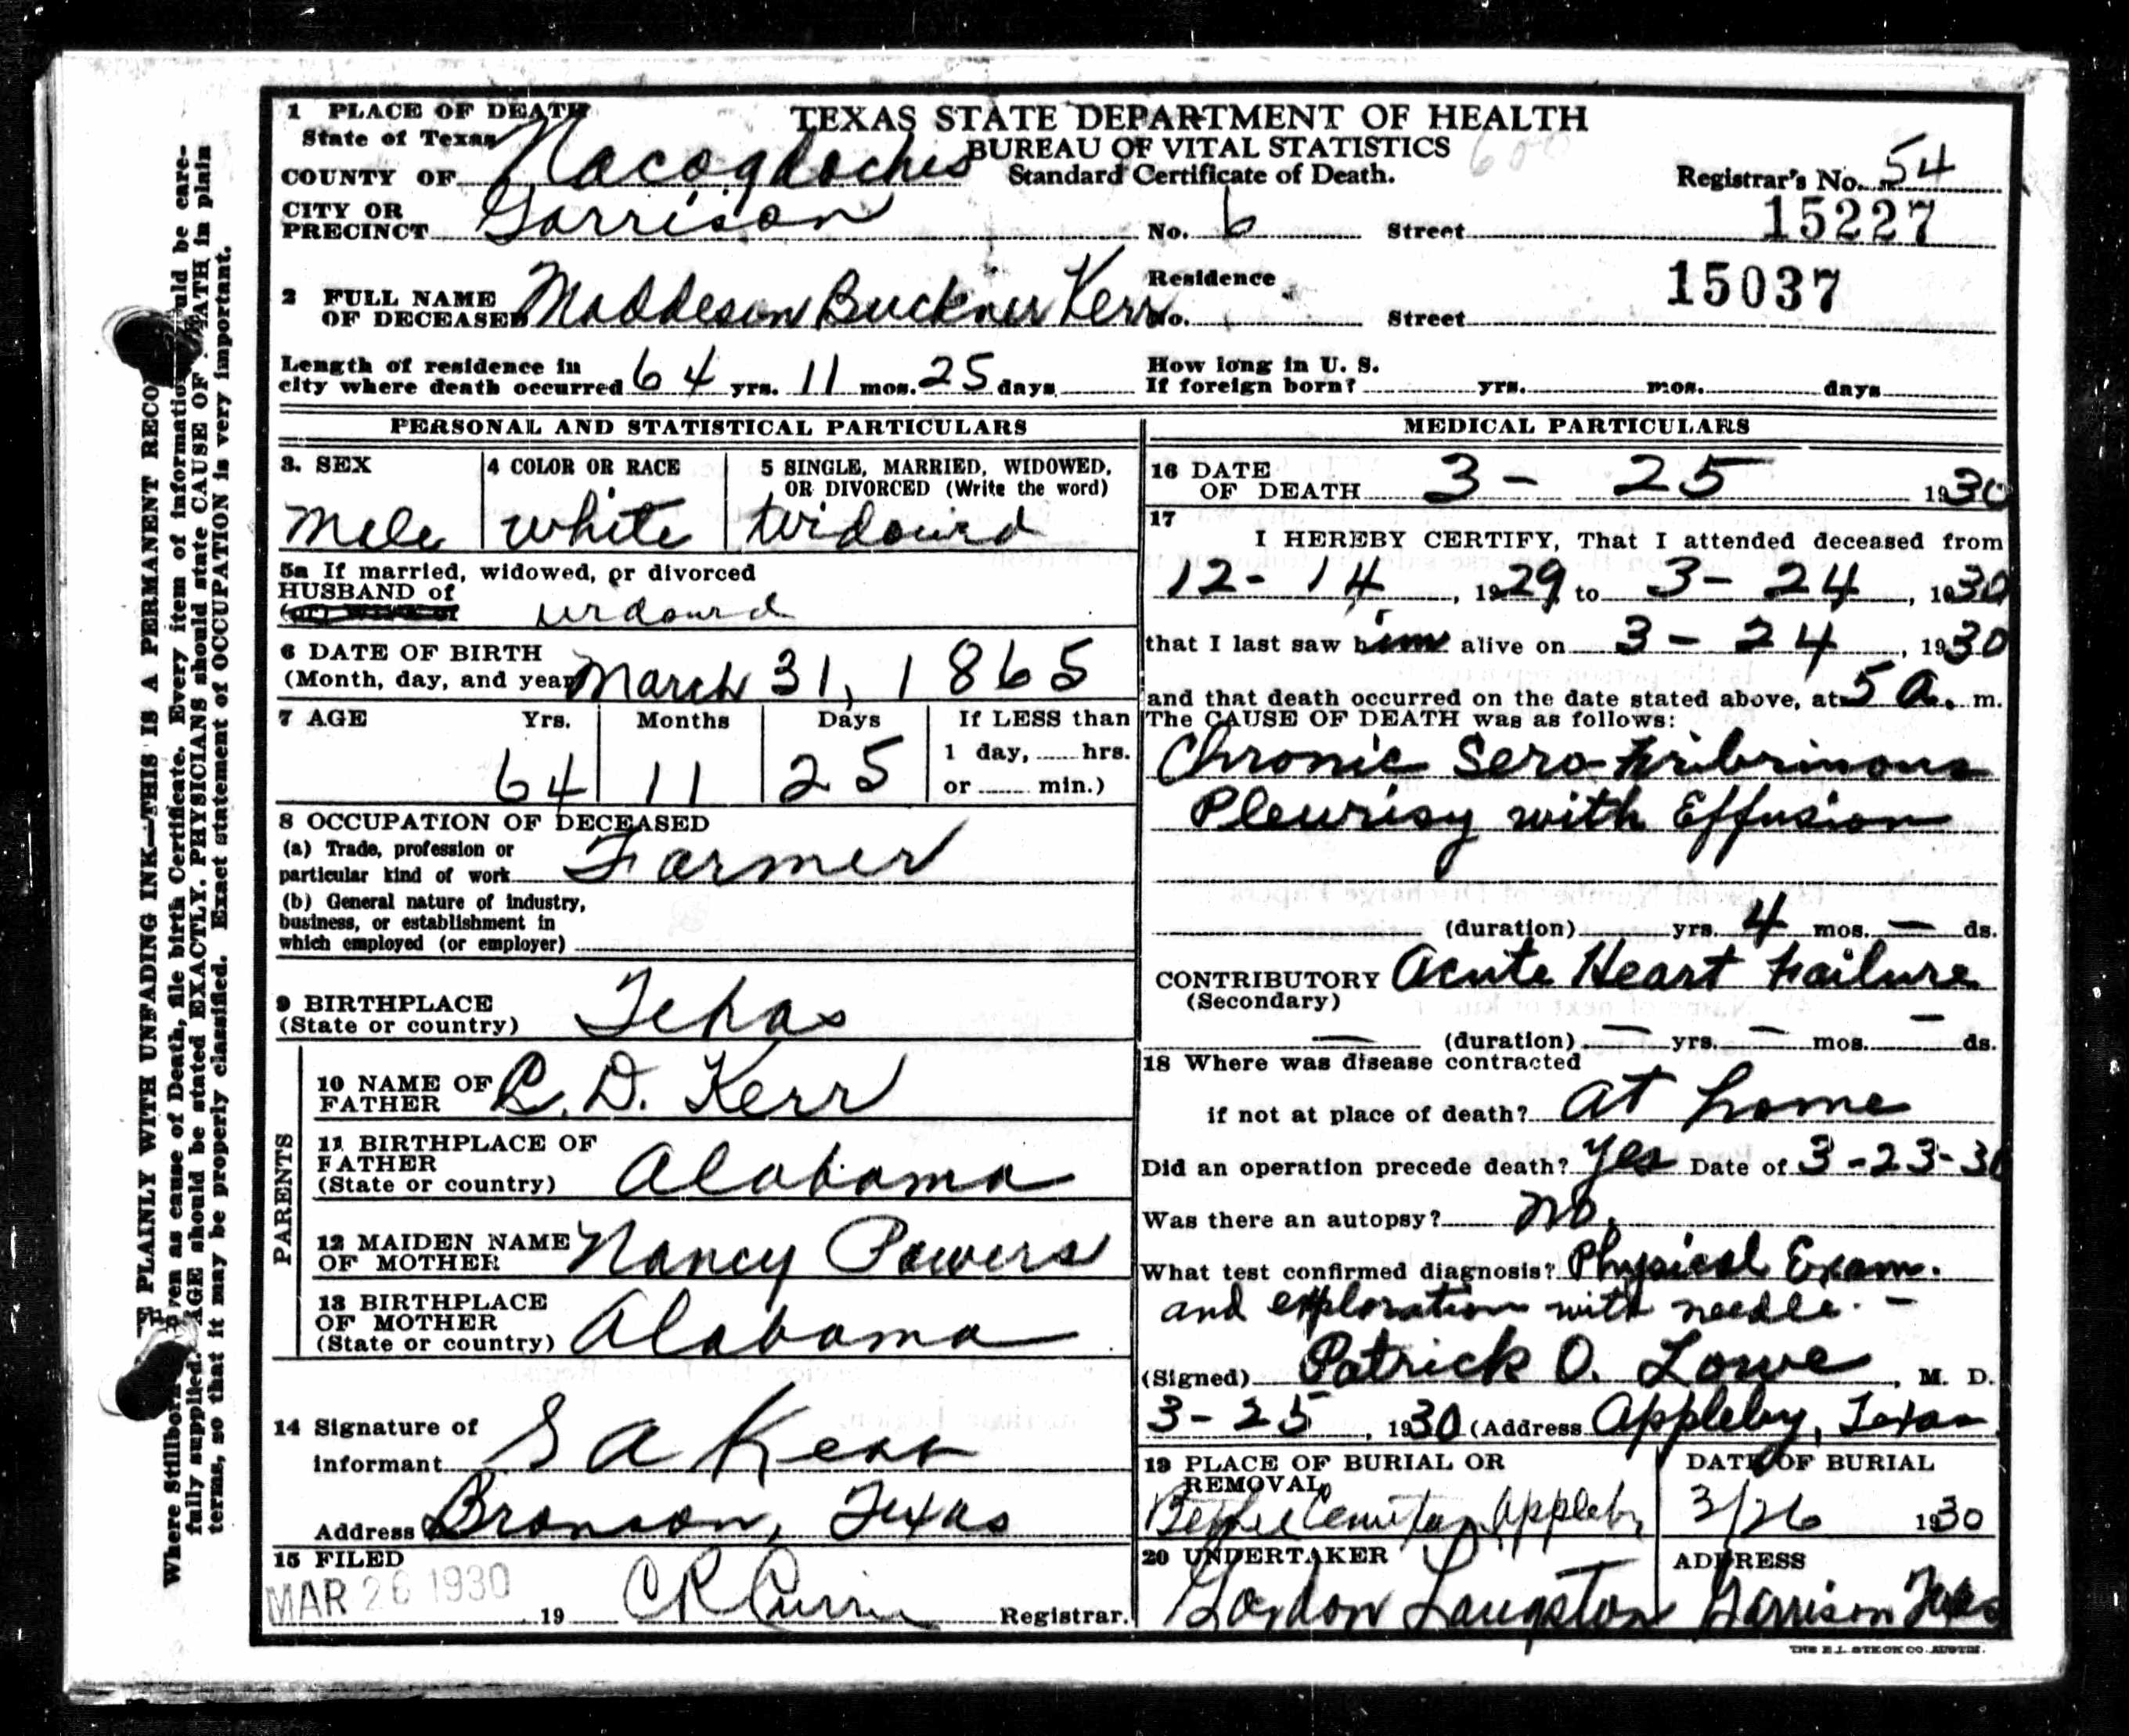 1 PLACE OF DEATH
State of Texas
TEXAS STATE DEPARTMENT OF HEALTH
BUREAU OF VITAL STATISTICS
Standard Certificate of Death.
COUNTY OF Nacogdoches
Registrar's No. 54
CITY OR PRECINCT Garrison No. 6 Street
15227
2 FULL NAME OF DECEASED Maddeson Buckner Kerr
Residence No. Street
15037
Length of residence in city where death occurred 64 yrs. 11 mos. 25 days
How long in U. S. If foreign born? yrs. mos. days
PERSONAL AND STATISTICAL PARTICULARS
3. SEX
Male
4 COLOR OR RACE
white
5 SINGLE, MARRIED, WIDOWED, OR DIVORCED (Write the word)
Widowrd
5a If married, widowed, or divorced
HUSBAND of
widowrd
6 DATE OF BIRTH
(Month, day, and year) March 31, 1865
7 AGE Yrs. Months Days
64 11 25
If LESS than
1 day, hrs.
or min.)
8 OCCUPATION OF DECEASED
(a) Trade, profession or
particular kind of work Farmer
(b) General nature of industry,
business, or establishment in
which employed (or employer)
9 BIRTHPLACE
(State or country) Texas
PARENTS
10 NAME OF FATHER R. D. Kerr
11 BIRTHPLACE OF FATHER
(State or country) Alabama
12 MAIDEN NAME OF MOTHER Nancy Powers
13 BIRTHPLACE OF MOTHER
(State or country) Alabama
14 Signature of
informant S A Kerr
Address Bronson, Texas
15 FILED
MAR 26 1930 19 C R Currie Registrar.
MEDICAL PARTICULARS
16 DATE OF DEATH 3 - 25 1930
17
I HEREBY CERTIFY, That I attended deceased from
12 - 14, 1929 to 3 - 24, 1930
that I last saw him alive on 3 - 24, 1930
and that death occurred on the date stated above, at 5 a. m.
The CAUSE OF DEATH was as follows:
Chronic Sero-Fribrinous
Pleurisy with Effusion
(duration) yrs. 4 mos. — ds.
CONTRIBUTORY Acute Heart Failure
(Secondary)
— (duration) — yrs. — mos. — ds.
18 Where was disease contracted
if not at place of death? At home
Did an operation precede death? Yes Date of 3-23-30
Was there an autopsy? No.
What test confirmed diagnosis? Physical Exam.
and exploration with needle. -
(Signed) Patrick O. Lowe, M. D.
3 - 25, 1930 (Address Appleby, Texas
19 PLACE OF BURIAL OR REMOVAL
Appleby
DATE OF BURIAL
3/26 1930
20 UNDERTAKER
Gordon Langston
ADDRESS
Garrison Texas
THE E.L. STECK CO. AUSTIN.
PLAINLY WITH UNFADING INK—THIS IS A PERMANENT RECO
Where Stillborn as cause of Death, file birth Certificate. Every item of information should be care-
fully supplied. AGE should be stated EXACTLY. PHYSICIANS should state CAUSE OF DEATH in plain
terms, so that it may be properly classified. Exact statement of OCCUPATION is very important.